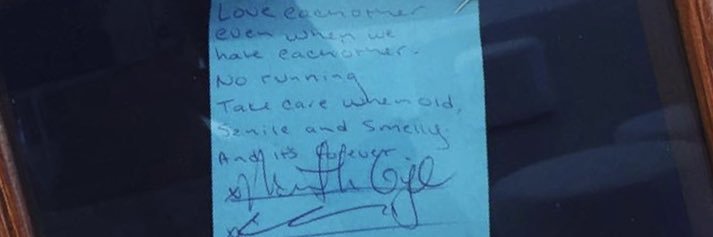 Love eachother
even when we
hate eachother.
No running
Take care when old,
Senile and smelly.
And it's forever.